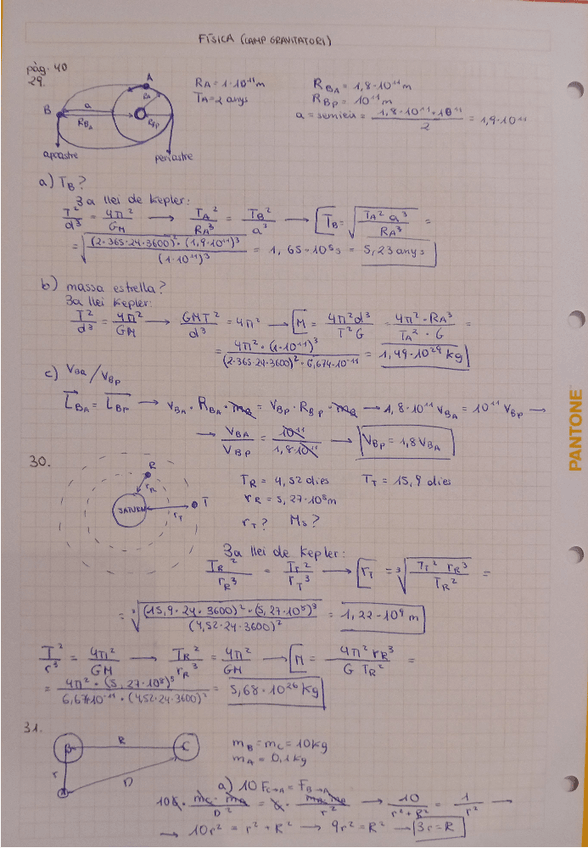 FÍSICA (CAMP GRAVITATORI)
pàg. 40
29.
A
B
a
R_BA
R_BP
apoastre
periastre
R_A = 1·10¹¹m
T_A = 2 anys
R_BA = 1,8·10¹¹m
R_BP = 10¹¹m
a = semieix = (1,8·10¹¹+10¹¹)/2 = 1,4·10¹¹
a) T_B?
3a llei de Kepler:
T²/d³ = 4π²/GM → T_A²/R_A³ = T_B²/a³ → T_B = √(T_A² a³/R_A³) =
= √((2·365·24·3600)²·(1,9·10¹¹)³/(1·10¹¹)³) = 1,65·10⁸s = 5,23 anys
b) massa estrella?
3a llei Kepler:
T²/d³ = 4π²/GM → GMT²/d³ = 4π² → M = 4π²d³/T²G = 4π²·R_A³/T_A²·G =
= 4π²·(1·10¹¹)³/(2·365·24·3600)²·6,674·10⁻¹¹ = 1,49·10²⁹ kg
c) V_Ba/V_Bp
L_BA = L_BP → V_BA·R_BA·m_B = V_BP·R_BP·m_B → 1,8·10¹¹ V_BA = 10¹¹ V_BP →
→ V_BA/V_BP = 10¹¹/1,8·10¹¹ → V_BP = 1,8 V_BA
30.
R
r_R
SATURN
r_T
T
T_R = 4,52 dies
T_T = 15,9 dies
r_R = 5,27·10⁸m
r_T? M_S?
3a llei de Kepler:
T_R²/r_R³ = T_T²/r_T³ → r_T = ³√(T_T² r_R³/T_R²) =
= ³√((15,9·24·3600)²·(5,27·10⁸)³/(4,52·24·3600)²) = 1,22·10⁹ m
T²/r³ = 4π²/GM → T_R²/r_R³ = 4π²/GM → M = 4π² r_R³/G T_R² =
= 4π²·(5,27·10⁸)³/6,67·10⁻¹¹·(4,52·24·3600)² = 5,68·10²⁶ Kg
31.
B
R
C
r
D
A
m_B = m_C = 10kg
m_A = 0,1kg
a) 10 F_C→A = F_B→A
10 G·m_C·m_A/D² = G·m_A·m_B/r² → 10/r²+R² = 1/r² →
→ 10r² = r² + R² → 9r² = R² → 3r = R
PANTONE